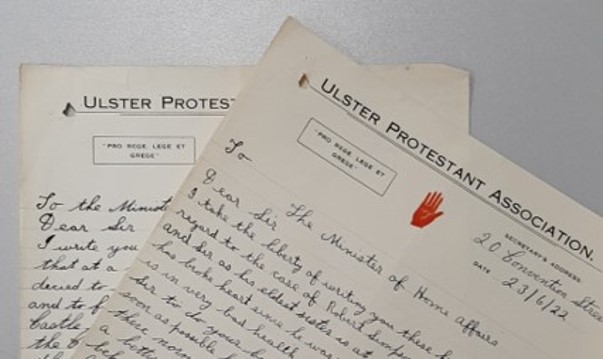 ULSTER PROTEST
"PRO REGE, LEGE ET
GREGE"
To the Ministe
Dear Sir
I write you
that at a
decued to
and to f
Castle
the B
ULSTER PROTESTANT ASSOCIATION.
"PRO REGE, LEGE ET
GREGE"
SECRETARY'S ADDRESS
20 Convention Stree
DATE 23/6/22
To
The Minister of Home affairs
Dear Sir
I take the liberty of writing you these
regard to the case of Robert Simp
and Sir as his eldest sister is at
his broke heart since he was
is in very bad health
Sir to do your be
soon as possible
these norm
a bitt